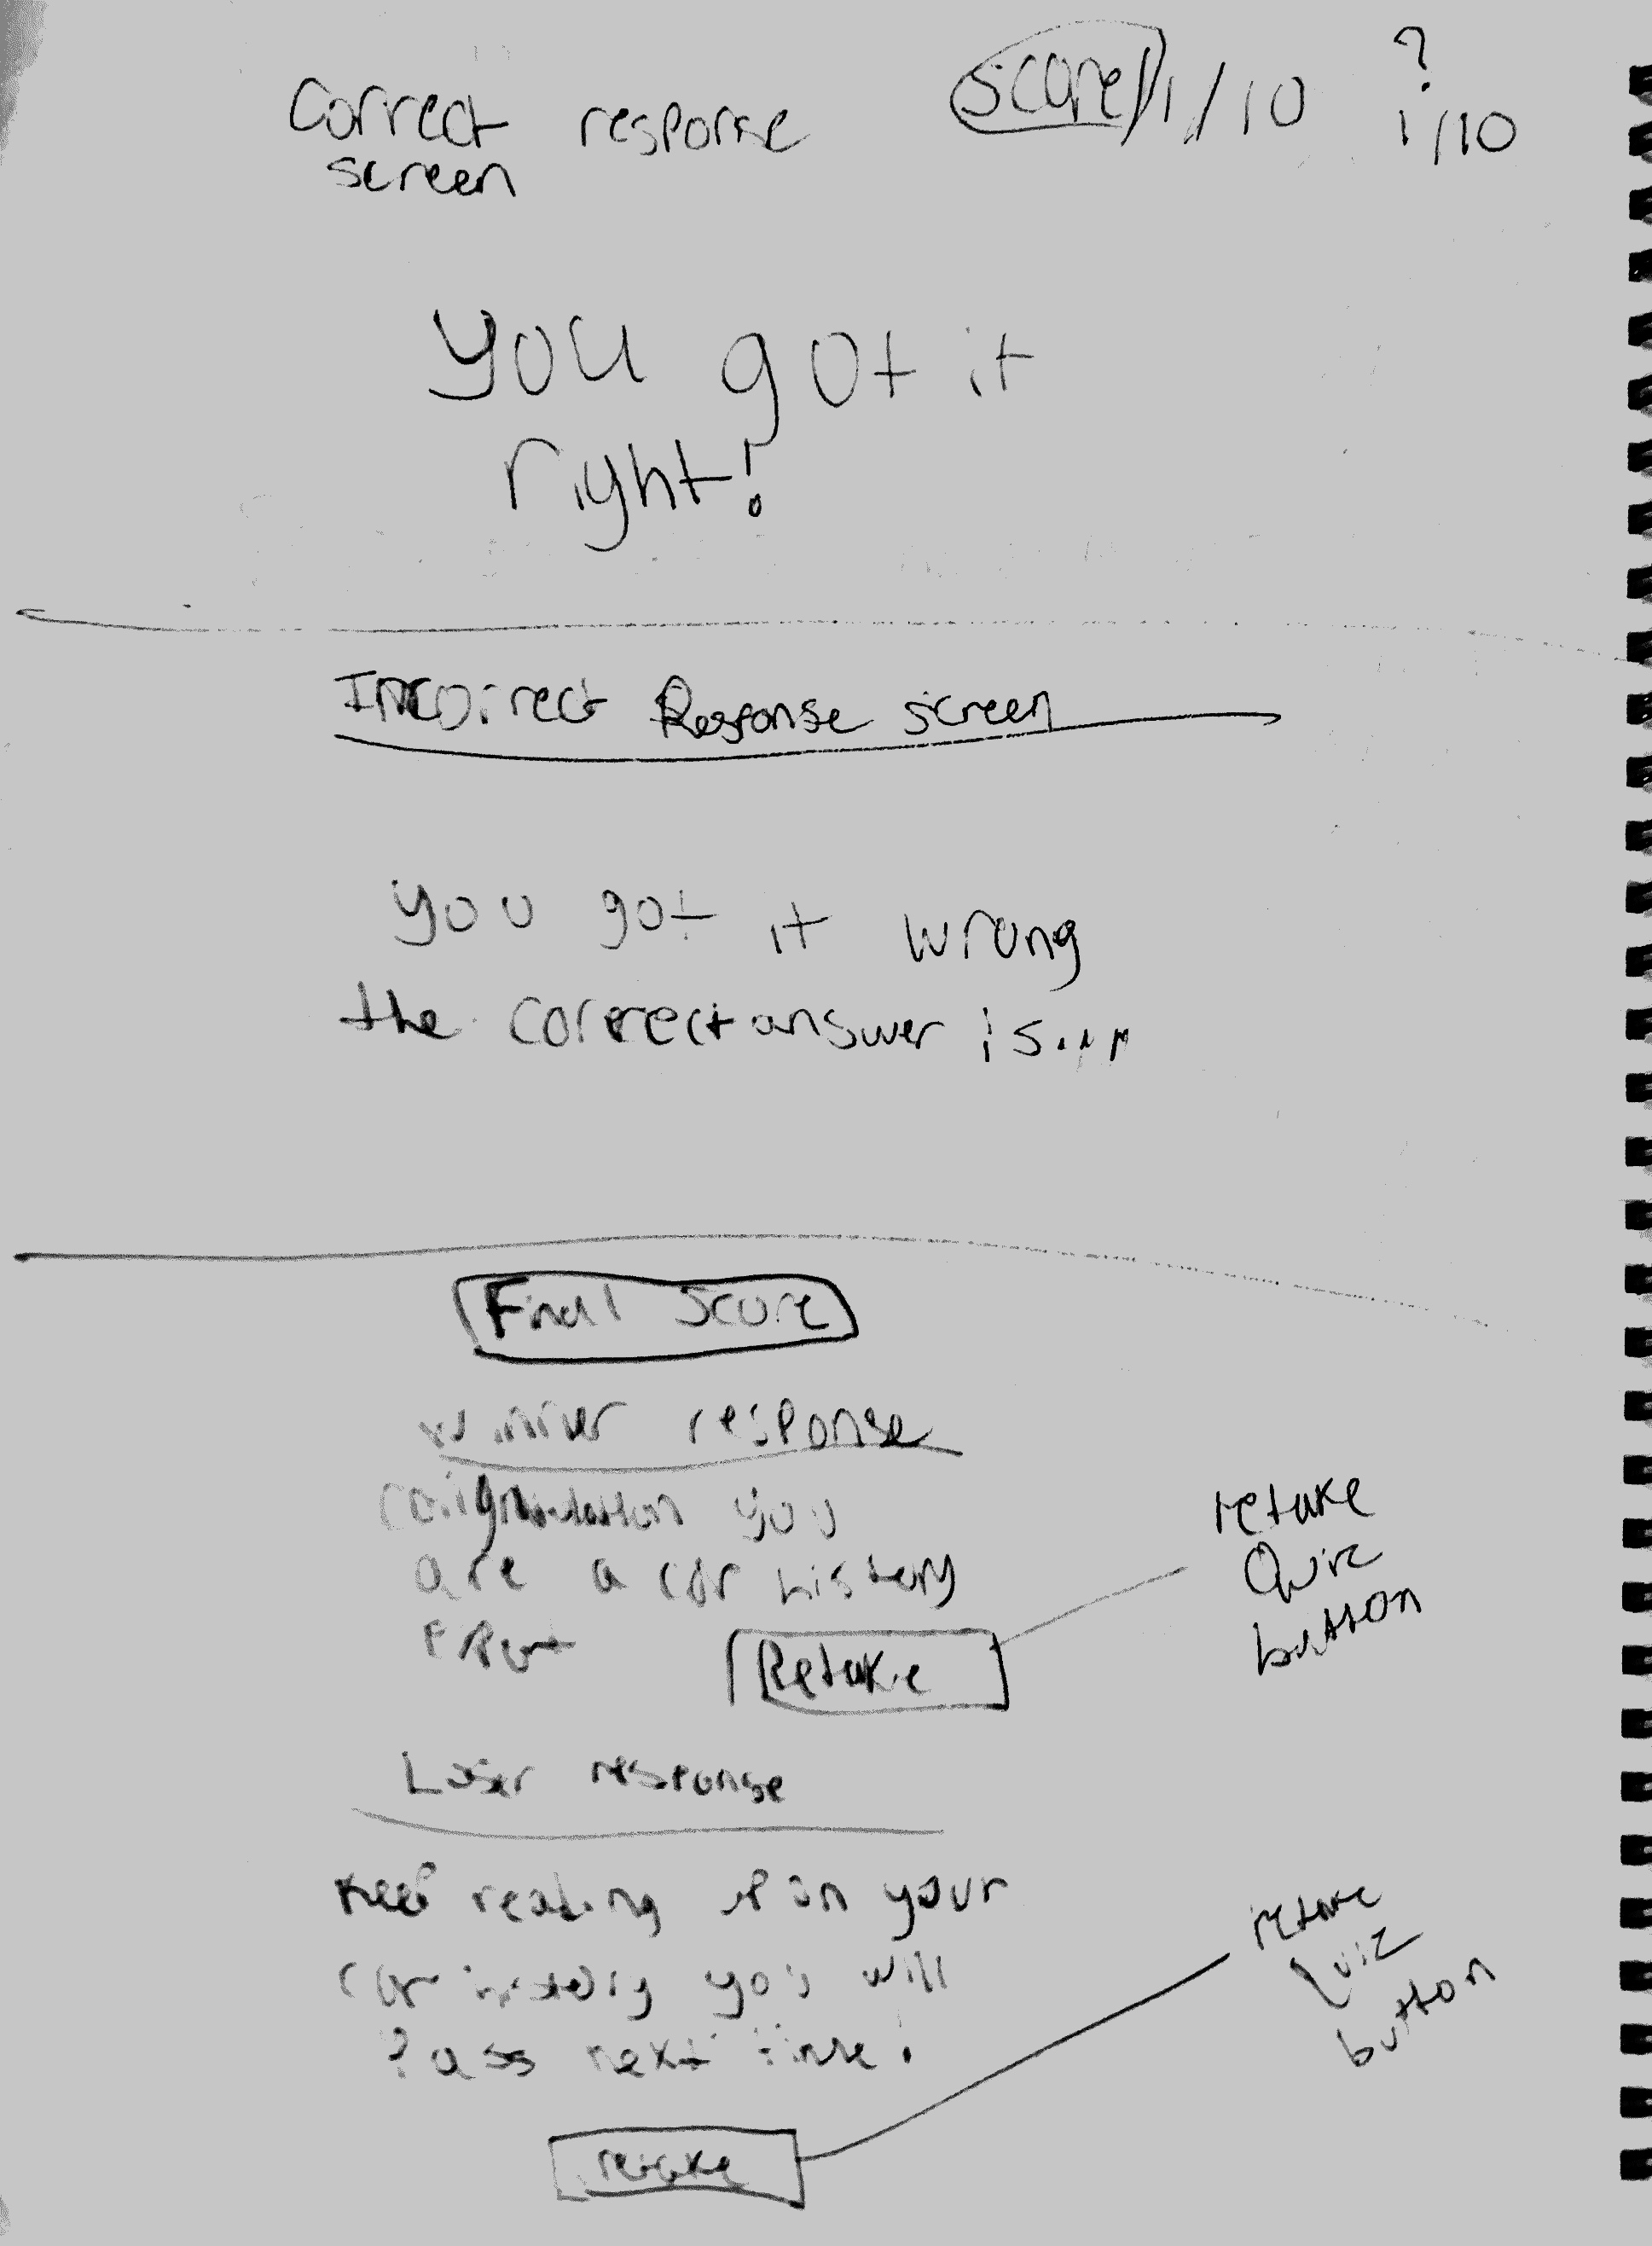 Correct response
screen
score 1/10
?
1/10
you got it
right!
Incorrect Response screen
you got it wrong
the correct answer is....
Final Score
winner response
you
are a car history
retake
Quiz
button
Retake
Loser response
Keep reading up on your
car history you will
Pass next time!
retake
Quiz
button
retake